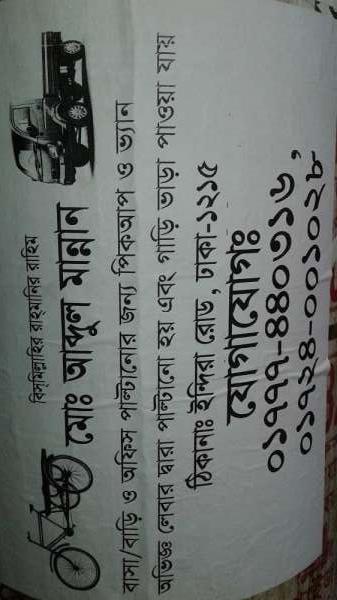 বিসমিল্লাহির রাহমানির রাহিম
মোঃ আব্দুল মান্নান
বাসা/বাড়ি ও অফিস পাল্টানোর জন্য পিকআপ ও ভ্যান
অভিজ্ঞ লেবার দ্বারা পাল্টানো হয় এবং গাড়ি ভাড়া পাওয়া যায়
ঠিকানাঃ ইন্দিরা রোড, ঢাকা-১২১৫
যোগাযোগঃ
০১৭৭৭-৪৪০৩১৬,
০১৭২৪-০০১০২৮